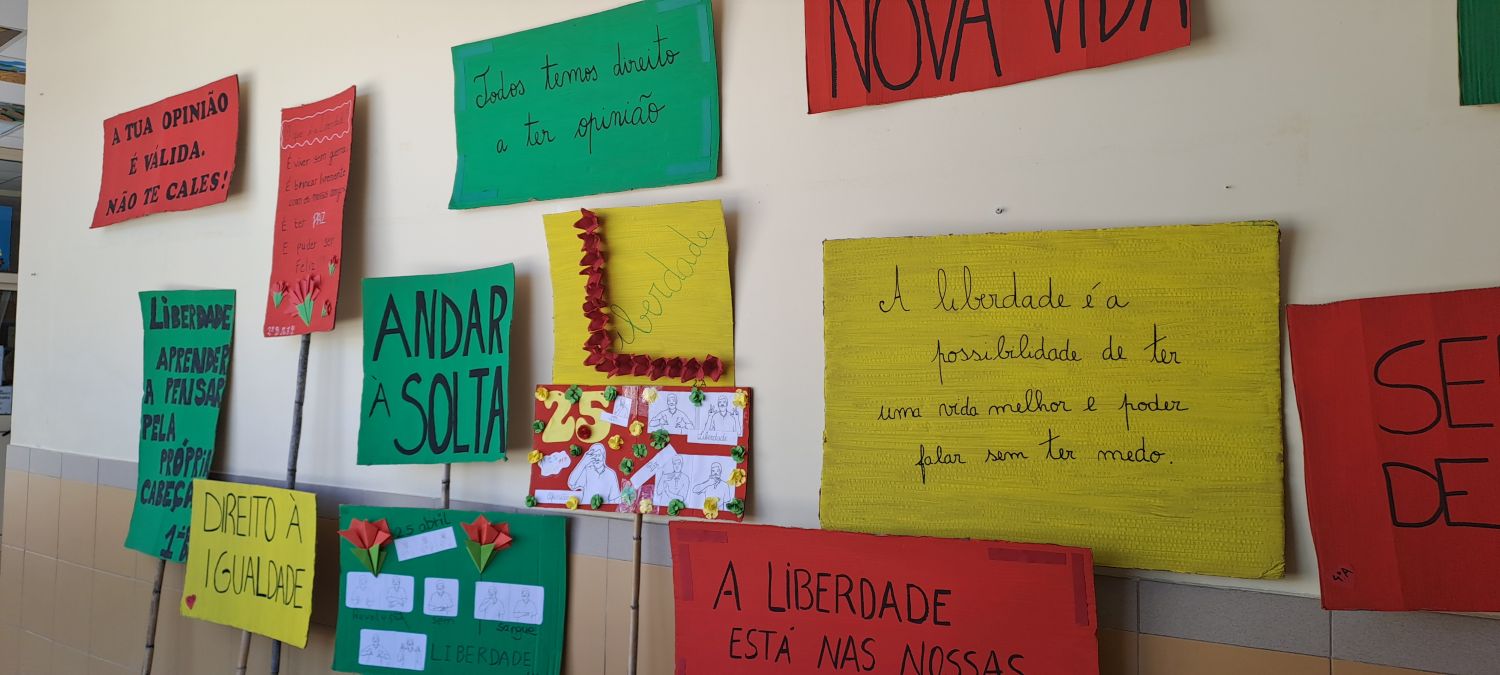 A TUA OPINIÃO
É VÁLIDA.
NÃO TE CALES!
É viver sem guerra
É brincar livremente
com os nossos amigos
É ter PAZ
E puder ser
Feliz
Todos temos direito
a ter opinião
NOVA VIDA
LIBERDADE
APRENDER
A PENSAR
PELA
PRÓPRIA
CABEÇA
ANDAR
À
SOLTA
Liberdade
25
Liberdade
Opinião
A liberdade é a
possibilidade de ter
uma vida melhor e poder
falar sem ter medo.
SE
DE
4ºA
DIREITO À
IGUALDADE
25 abril
sem
sangue
LIBERDADE
A LIBERDADE
ESTÁ NAS NOSSAS